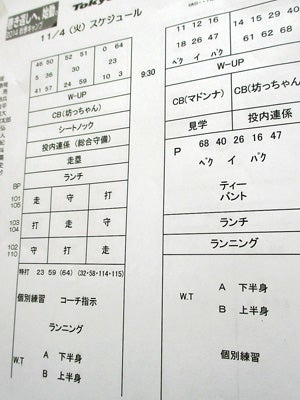 巻き返しへ、始動
2014 秋季キャンプ
Tokyo
11/4 (火) スケジュール
46 50 52 51 0 64
5
41 57 24 59 10 3
W-UP
CB(坊っちゃん)
シートノック
投内連係 (総合守備)
走塁
ランチ
BP
101 105 走 守 打
103 104 打 走 守
102 110 守 打 走
特打 23 59 (64) (32・58・114・115)
個別練習 コーチ指示
ランニング
W.T A 下半身
B 上半身
11 12 16
18 26 47
ペク イ パク
14 15 29 40
9:30
W-UP
CB(マドンナ) CB(坊っちゃん)
見学 投内連係
P 68 40 26 16 47
ペク イ パク
ティー
バント
ランチ
ランニング
W.T A 下半身
B 上半身
個別練習